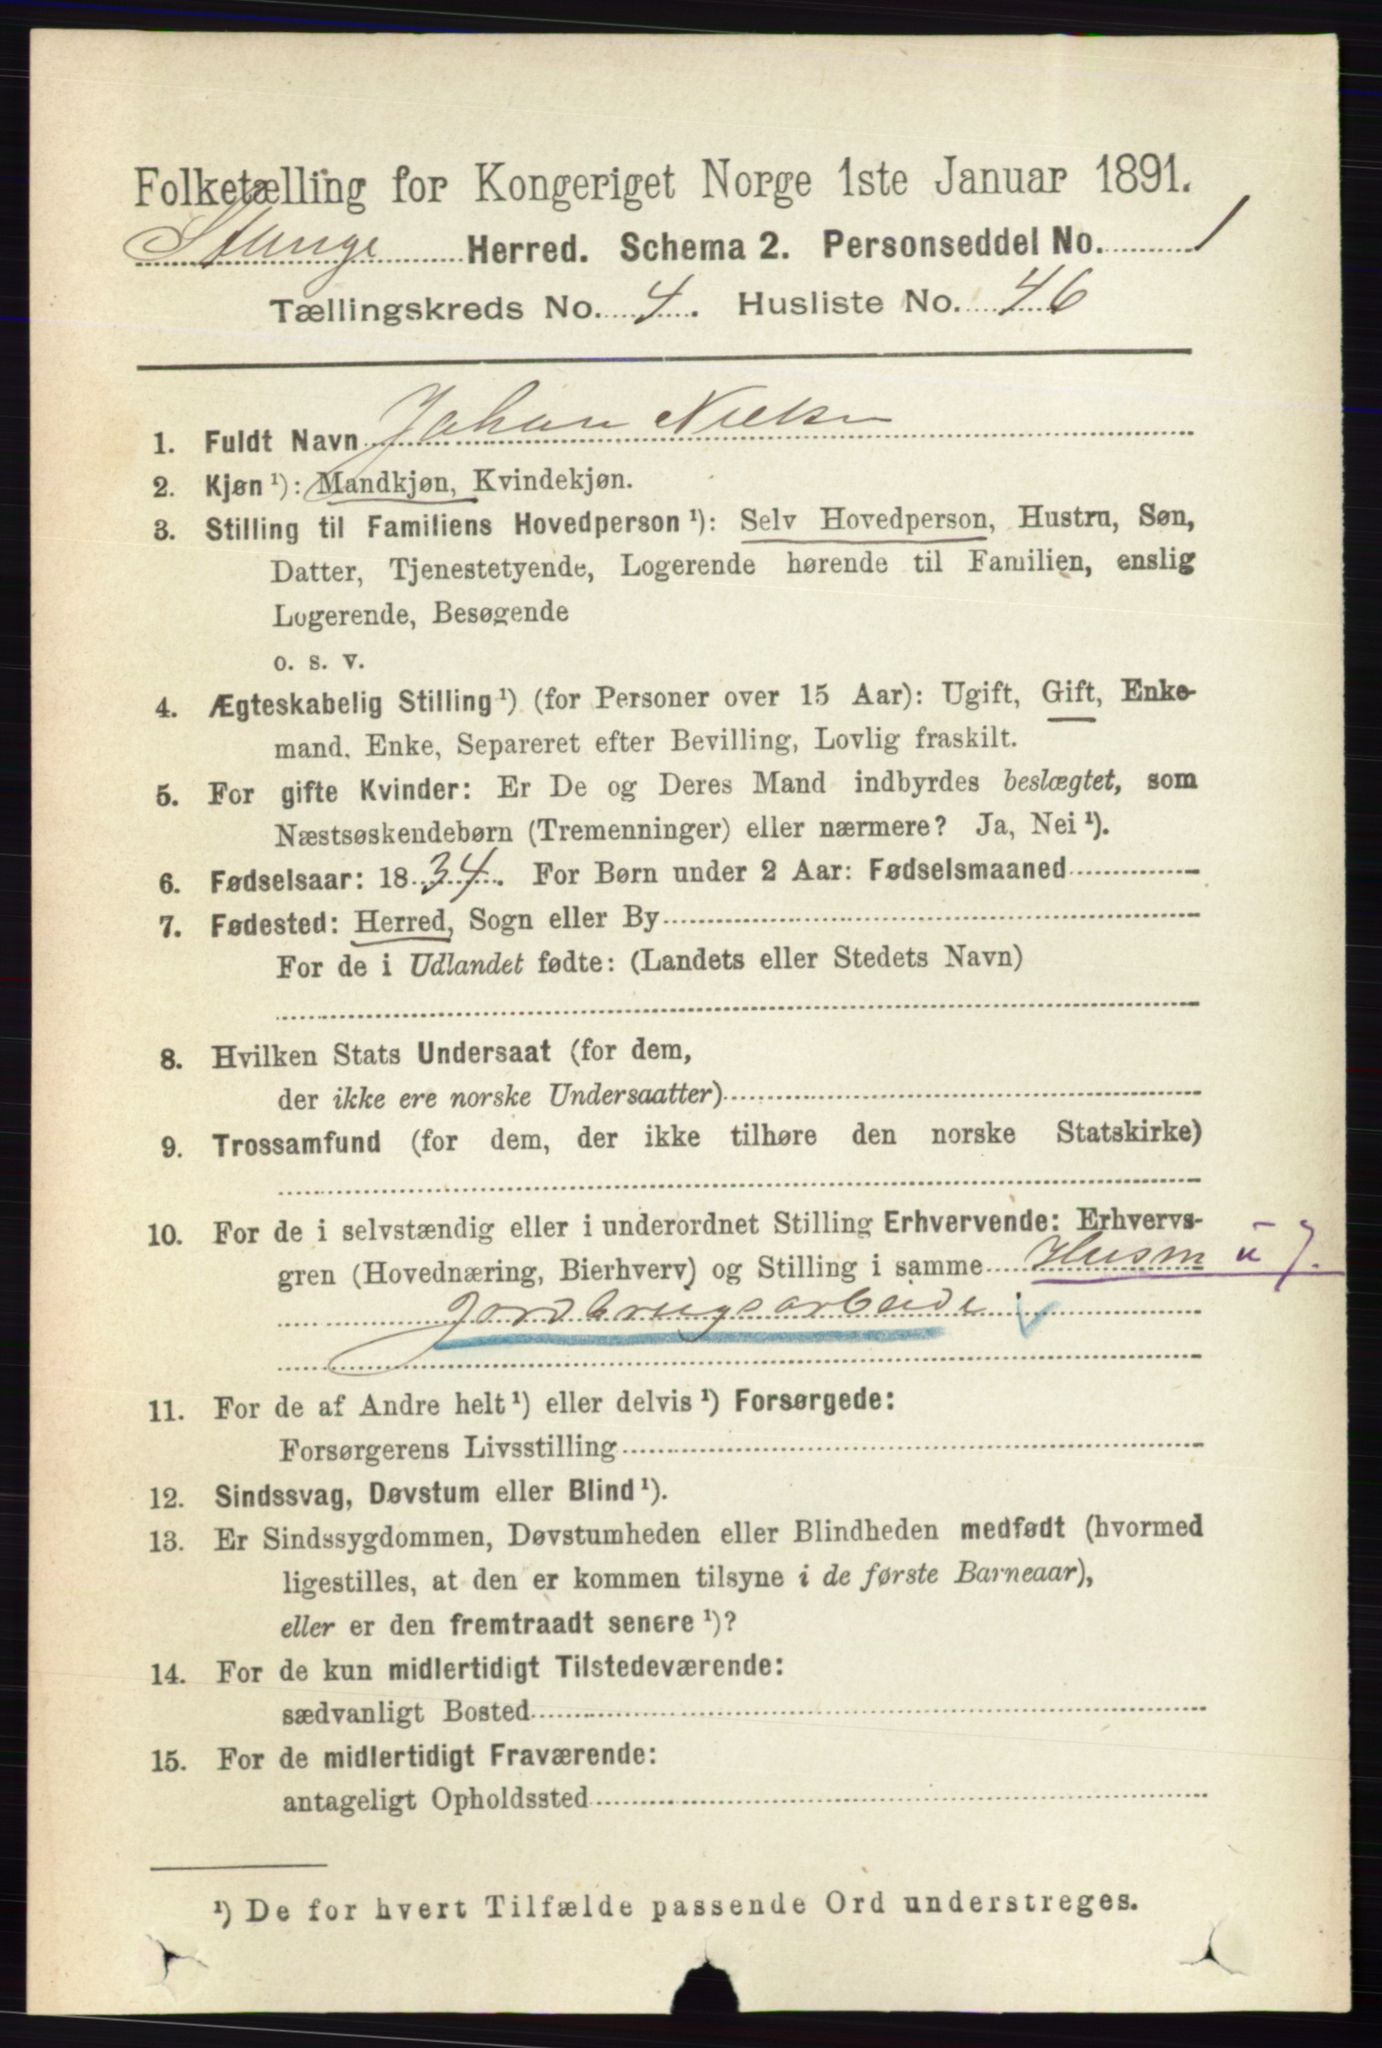 Folketælling for Kongeriget Norge 1ste Januar 1891.
Stange Herred. Schema 2. Personseddel No. 1
Tællingskreds No. 4. Husliste No. 46
1. Fuldt Navn Johan Nielsen
2. Kjøn ¹): Mandkjøn, Kvindekjøn.
3. Stilling til Familiens Hovedperson ¹): Selv Hovedperson, Hustru, Søn,
Datter, Tjenestetyende, Logerende hørende til Familien, enslig
Logerende, Besøgende
o. s. v.
4. Ægteskabelig Stilling ¹) (for Personer over 15 Aar): Ugift, Gift, Enke-
mand, Enke, Separeret efter Bevilling, Lovlig fraskilt.
5. For gifte Kvinder: Er De og Deres Mand indbyrdes beslægtet, som
Næstsøskendebørn (Tremenninger) eller nærmere? Ja, Nei ¹).
6. Fødselsaar: 1834. For Børn under 2 Aar: Fødselsmaaned
7. Fødested: Herred, Sogn eller By
For de i Udlandet fødte: (Landets eller Stedets Navn)
8. Hvilken Stats Undersaat (for dem,
der ikke ere norske Undersaatter)
9. Trossamfund (for dem, der ikke tilhøre den norske Statskirke)
10. For de i selvstændig eller i underordnet Stilling Erhvervende: Erhvervs-
gren (Hovednæring, Bierhverv) og Stilling i samme Husm u J.
Jordbrugsarbeide
11. For de af Andre helt ¹) eller delvis ¹) Forsørgede:
Forsørgerens Livsstilling
12. Sindssvag, Døvstum eller Blind ¹).
13. Er Sindssygdommen, Døvstumheden eller Blindheden medfødt (hvormed
ligestilles, at den er kommen tilsyne i de første Barneaar),
eller er den fremtraadt senere ¹)?
14. For de kun midlertidigt Tilstedeværende:
sædvanligt Bosted
15. For de midlertidigt Fraværende:
antageligt Opholdssted
¹) De for hvert Tilfælde passende Ord understreges.